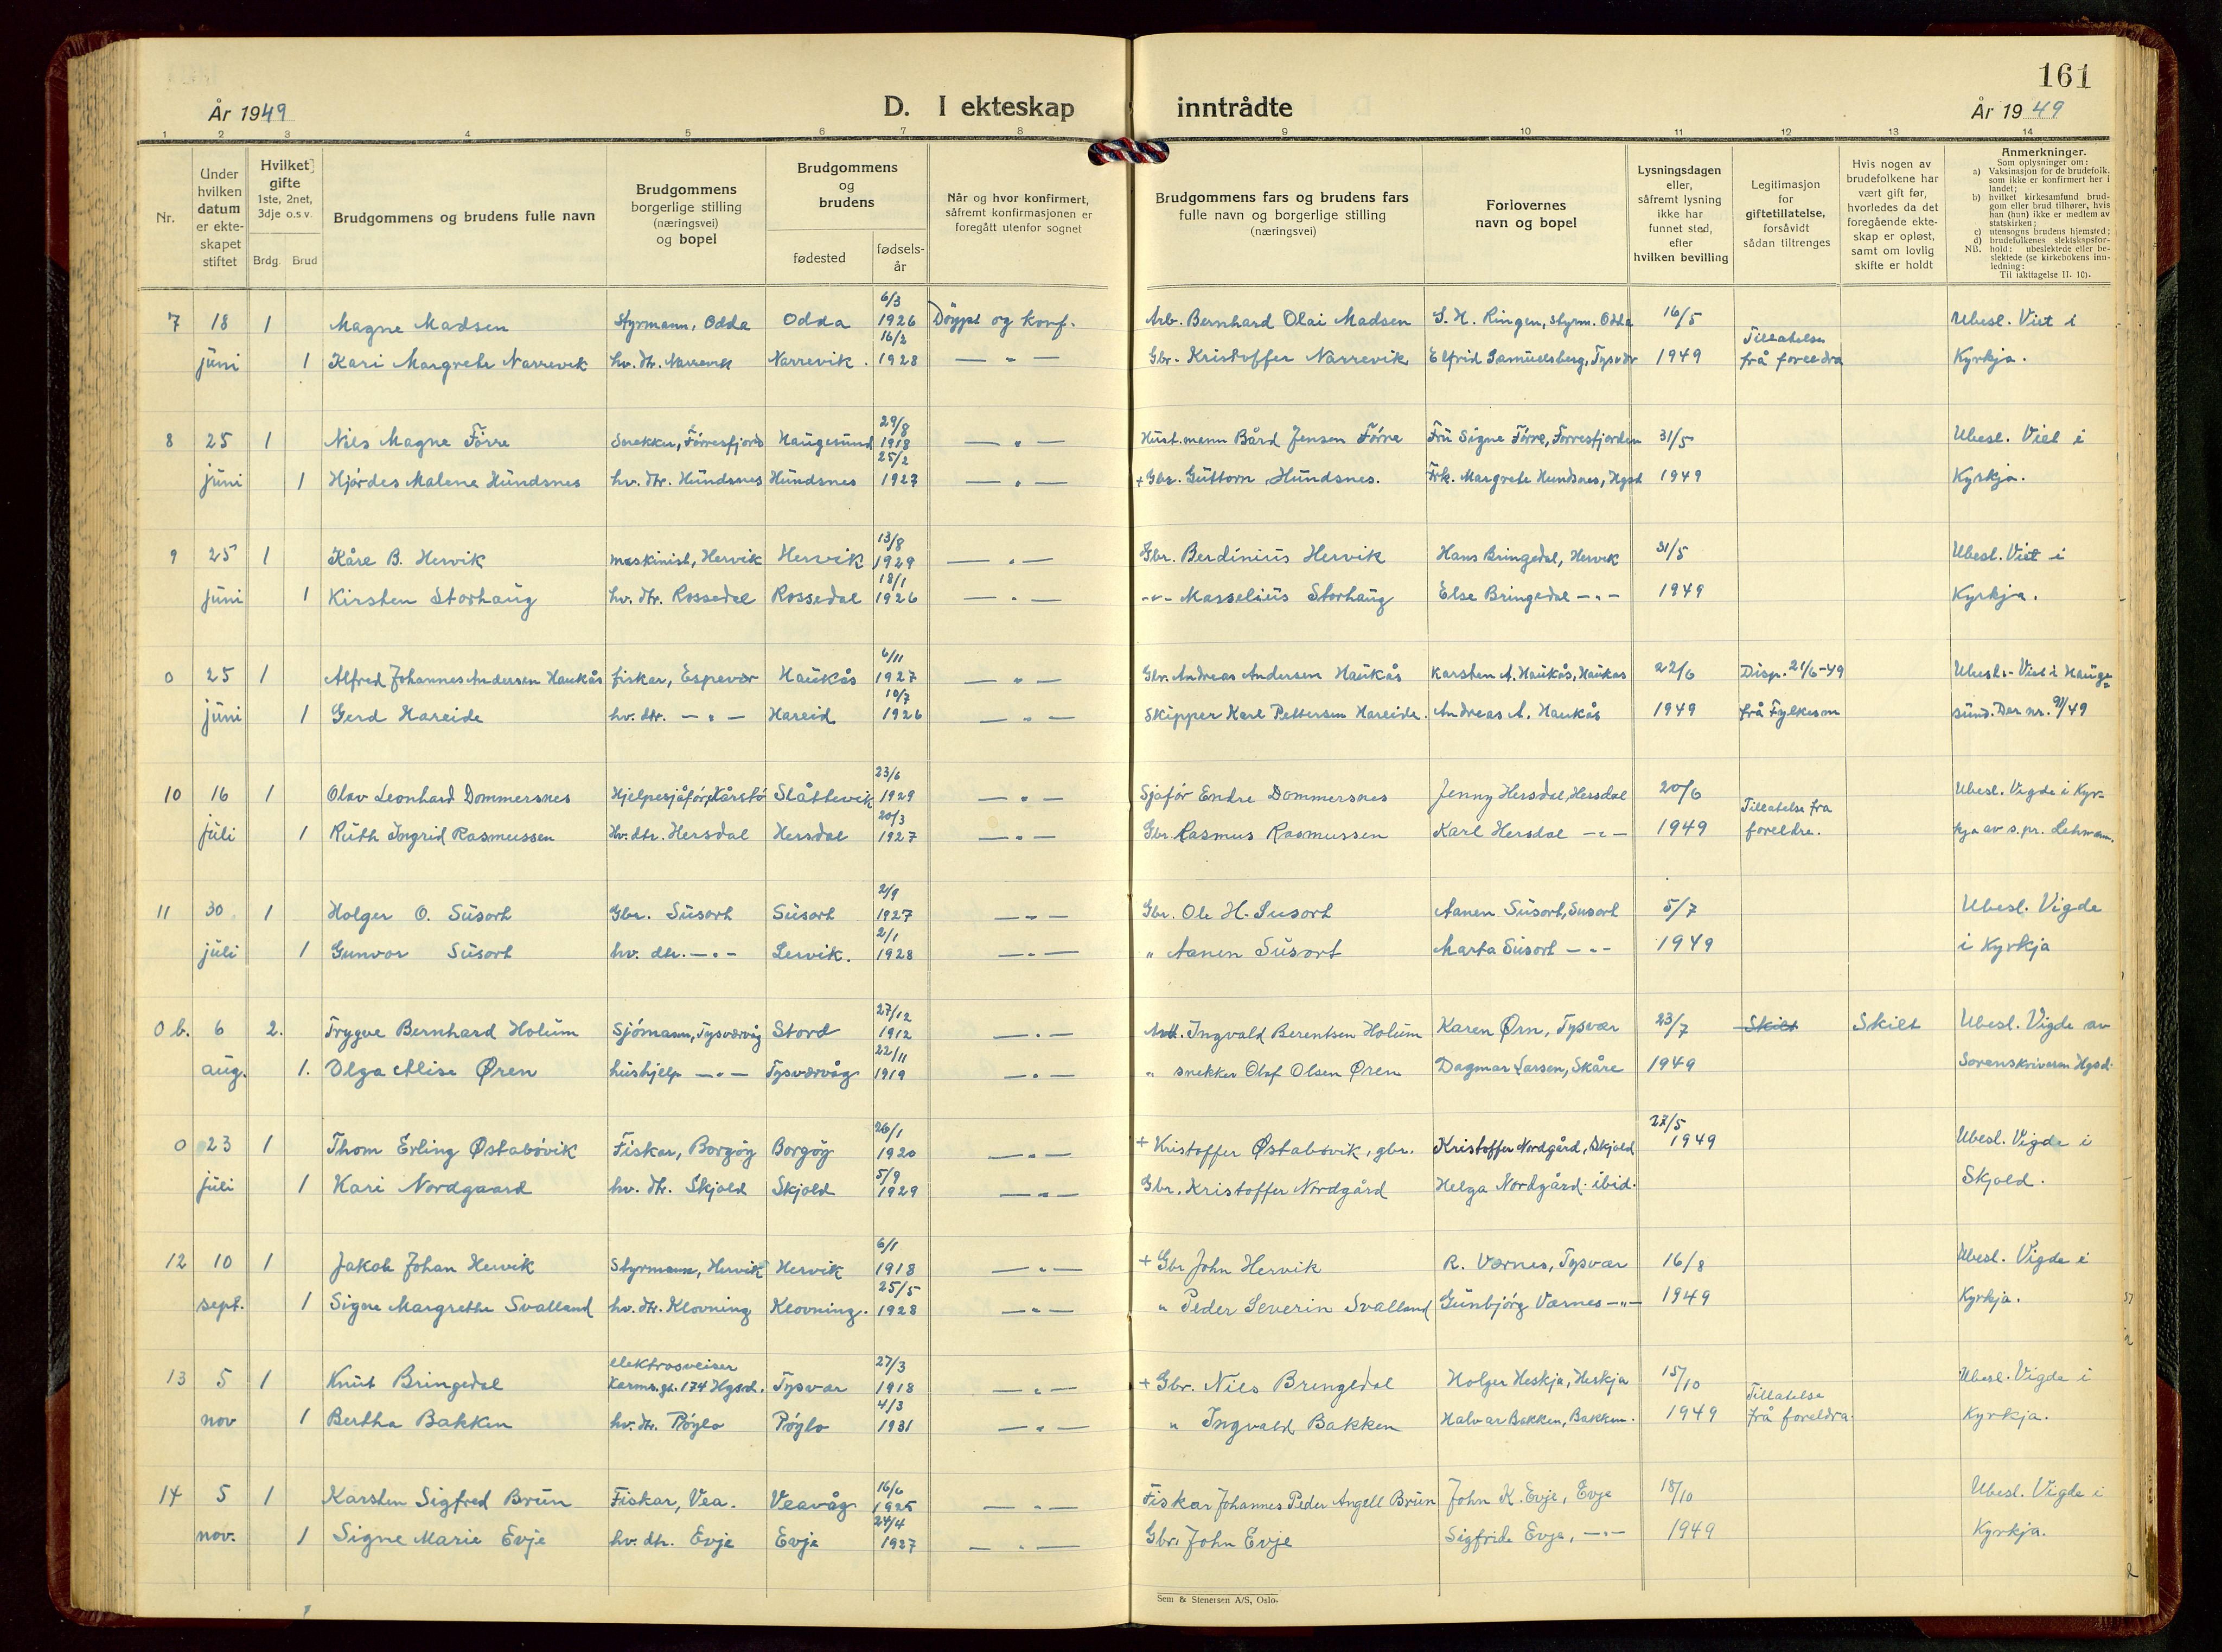 161
År 1949
D. I ekteskap inntrådte
År 1949
1 2 3 4 5 6 7 8 9 10 11 12 13 14
Nr.
Under hvilken datum er ekte- skapet stiftet
Hvilket gifte 1ste, 2net, 3dje o.s.v.
Brdg. Brud
Brudgommens og brudens fulle navn
Brudgommens borgerlige stilling (næringsvei) og bopel
Brudgommens og brudens
fødested
fødsels- år
Når og hvor konfirmert, såfremt konfirmasjonen er foregått utenfor sognet
Brudgommens fars og brudens fars fulle navn og borgerlige stilling (næringsvei)
Forlovernes navn og bopel
Lysningsdagen eller, såfremt lysning ikke har funnet sted, efter hvilken bevilling
Legitimasjon for giftetillatelse, forsåvidt sådan tiltrenges
Hvis nogen av brudefolkene har vært gift før, hvorledes da det foregående ekte- skap er opløst, samt om lovlig skifte er holdt
Anmerkninger.
Som oplysninger om:
a) Vaksinasjon for de brudefolk, som ikke er konfirmert her i landet;
b) hvilket kirkesamfund brud- gom eller brud tilhører, hvis han (hun) ikke er medlem av statskirken;
c) utensogns brudens hjemsted;
d) brudefolkenes slektskapsfor- hold: ubeslektede eller be- slektede (se kirkebokens inn- ledning:
NB. Til iakttagelse II. 10).
7 18 1 Magne Madsen Styrmann, Odda Odda 6/3 1926 Döypt og konf. Arb. Bernhard Olai Madsen S. H. Ringen, styrm. Odda 16/5 Ubesl. Viet i
juni 1 Kari Margrethe Narrevik hv. dtr. Narrevik Narrevik. 16/2 1928 — " — Gbr. Kristoffer Narrevik Elfrid Samuelsberg, Tysvær 1949 Tillatelse frå foreldra Kyrkja.
8 25 1 Nils Magne Förre Snekker, Förresfjord Haugesund 29/8 1918 — " — Hust.mann Bård Jensen Förre Fru Signe Förre, Förresfjorden 31/5 Ubesl. Viet i
juni 1 Hjördes Malene Hundsnes hv. dtr. Hundsnes Hundsnes 25/2 1923 — " — + Gbr. Guttorm Hundsnes. Frk. Margrete Hundsnes, Hgsd 1949 Kyrkja.
9 25 1 Kåre B. Hervik maskinist, Hervik Hervik 13/8 1929 — " — Gbr. Berdinius Hervik Hans Bringedal, Hervik 31/5 Ubesl. Viet i
juni 1 Kirsten Storhaug hv. dtr. Rossedal Rossedal 18/1 1926 — " — -"- Masselius Storhaug Else Bringedal — " — 1949 Kyrkja.
0 25 1 Alfred Johannes Andersen Haukås fiskar, Espevær Haukås 6/11 1927 — " — Gbr. Andreas Andersen Haukås Karsten A. Haukås, Haukås 22/6 Disp. 21/6-49 Ubesl. Viet i Hauge-
juni 1 Gerd Hareide hv. dtr. — " — Hareid 10/7 1926 — " — Skipper Karl Pettersen Hareide. Andreas A. Haukås 1949 frå Fylkesm sund. Der nr. 91/49
10 16 1 Olav Leonhard Dommersnes Hjelpesjåför, Kårstö Slåttevik 23/6 1929 — " — Sjåför Endre Dommersnes Jenny Hersdal, Hersdal 20/6 Ubesl. Vigde i Kyr-
juli 1 Ruth Ingrid Rasmussen Hv. dtr. Hersdal Hersdal 20/3 1927 — " — Gbr. Rasmus Rasmussen Karl Hersdal — " — 1949 Tillatelse fra foreldre. kja av s.pr. Lehmann.
11 30 1 Holger O. Susort Gbr. Susort Susort 2/9 1927 — " — Gbr. Ole H. Susort Aanen Susort, Susort 5/7 Ubesl. Vigde
juli 1 Gunvor Susort hv. dtr. — " — Lervik. 2/1 1928 — " — " Aanen Susort Marta Susort — " — 1949 i Kyrkja
0 b. 6 2. Trygve Bernhard Holum Sjömann, Tysværvåg Stord 27/12 1912 — " — Ingvald Berentsen Holum Karen Ørn, Tysvær 23/7 Skilt Skilt Ubesl. Vigde av
aug. 1. Olga Alise Øren hushjelp — " — Tysværvåg 22/11 1919 — " — " snekker Olaf Olsen Øren Dagmar Larsen, Skåre 1949 Sorenskrivaren Hgsd.
0 23 1 Thom Erling Østabövik Fiskar, Borgöy Borgöy 26/1 1920 — " — + Kristoffer Østabövik, gbr. Kristoffer Nordgård, Skjold 27/5 1949 Ubesl. Vigde i
juli 1 Kari Nordgaard hv. dtr. Skjold Skjold 5/9 1929 — " — Gbr. Kristoffer Nordgård Helga Nordgård. ibid. Skjold.
12 10 1 Jakob Johan Hervik Styrmann, Hervik Hervik 6/1 1918 — " — + Gbr John Hervik R. Værnes, Tysvær 16/8 Ubesl. Vigde i
sept. 1 Signe Margrethe Svalland hv. dtr. Klovning Klovning. 25/5 1928 — " — " Peder Severin Svalland Gunbjörg Værnes — " — 1949 Kyrkja.
13 5 1 Knut Bringedal elektrosveiser Karms.gt. 174 Hgsd. Tysvær 27/3 1918 — " — + Gbr. Nils Bringedal Holger Heskja, Heskja 15/10 Ubesl. Vigde i
nov 1 Bertha Bakken hv. dtr. Pöylo Pöylo 4/3 1931 — " — " Ingvald Bakken Halvar Bakken, Bakken. 1949 Tillatelse frå foreldra. Kyrkja.
14 5 1 Karsten Sigfred Brun Fiskar, Vea. Veavåg 16/6 1925 — " — Fiskar Johannes Peder Angell Brun John K. Evje, Evje 18/10 Ubesl. Vigde i
nov. 1 Signe Marie Evje hv. dtr. Evje Evje 24/4 1927 — " — Gbr. John Evje Sigfride Evje, — " — 1949 Kyrkja.
Sem & Stenersen A/S, Oslo.